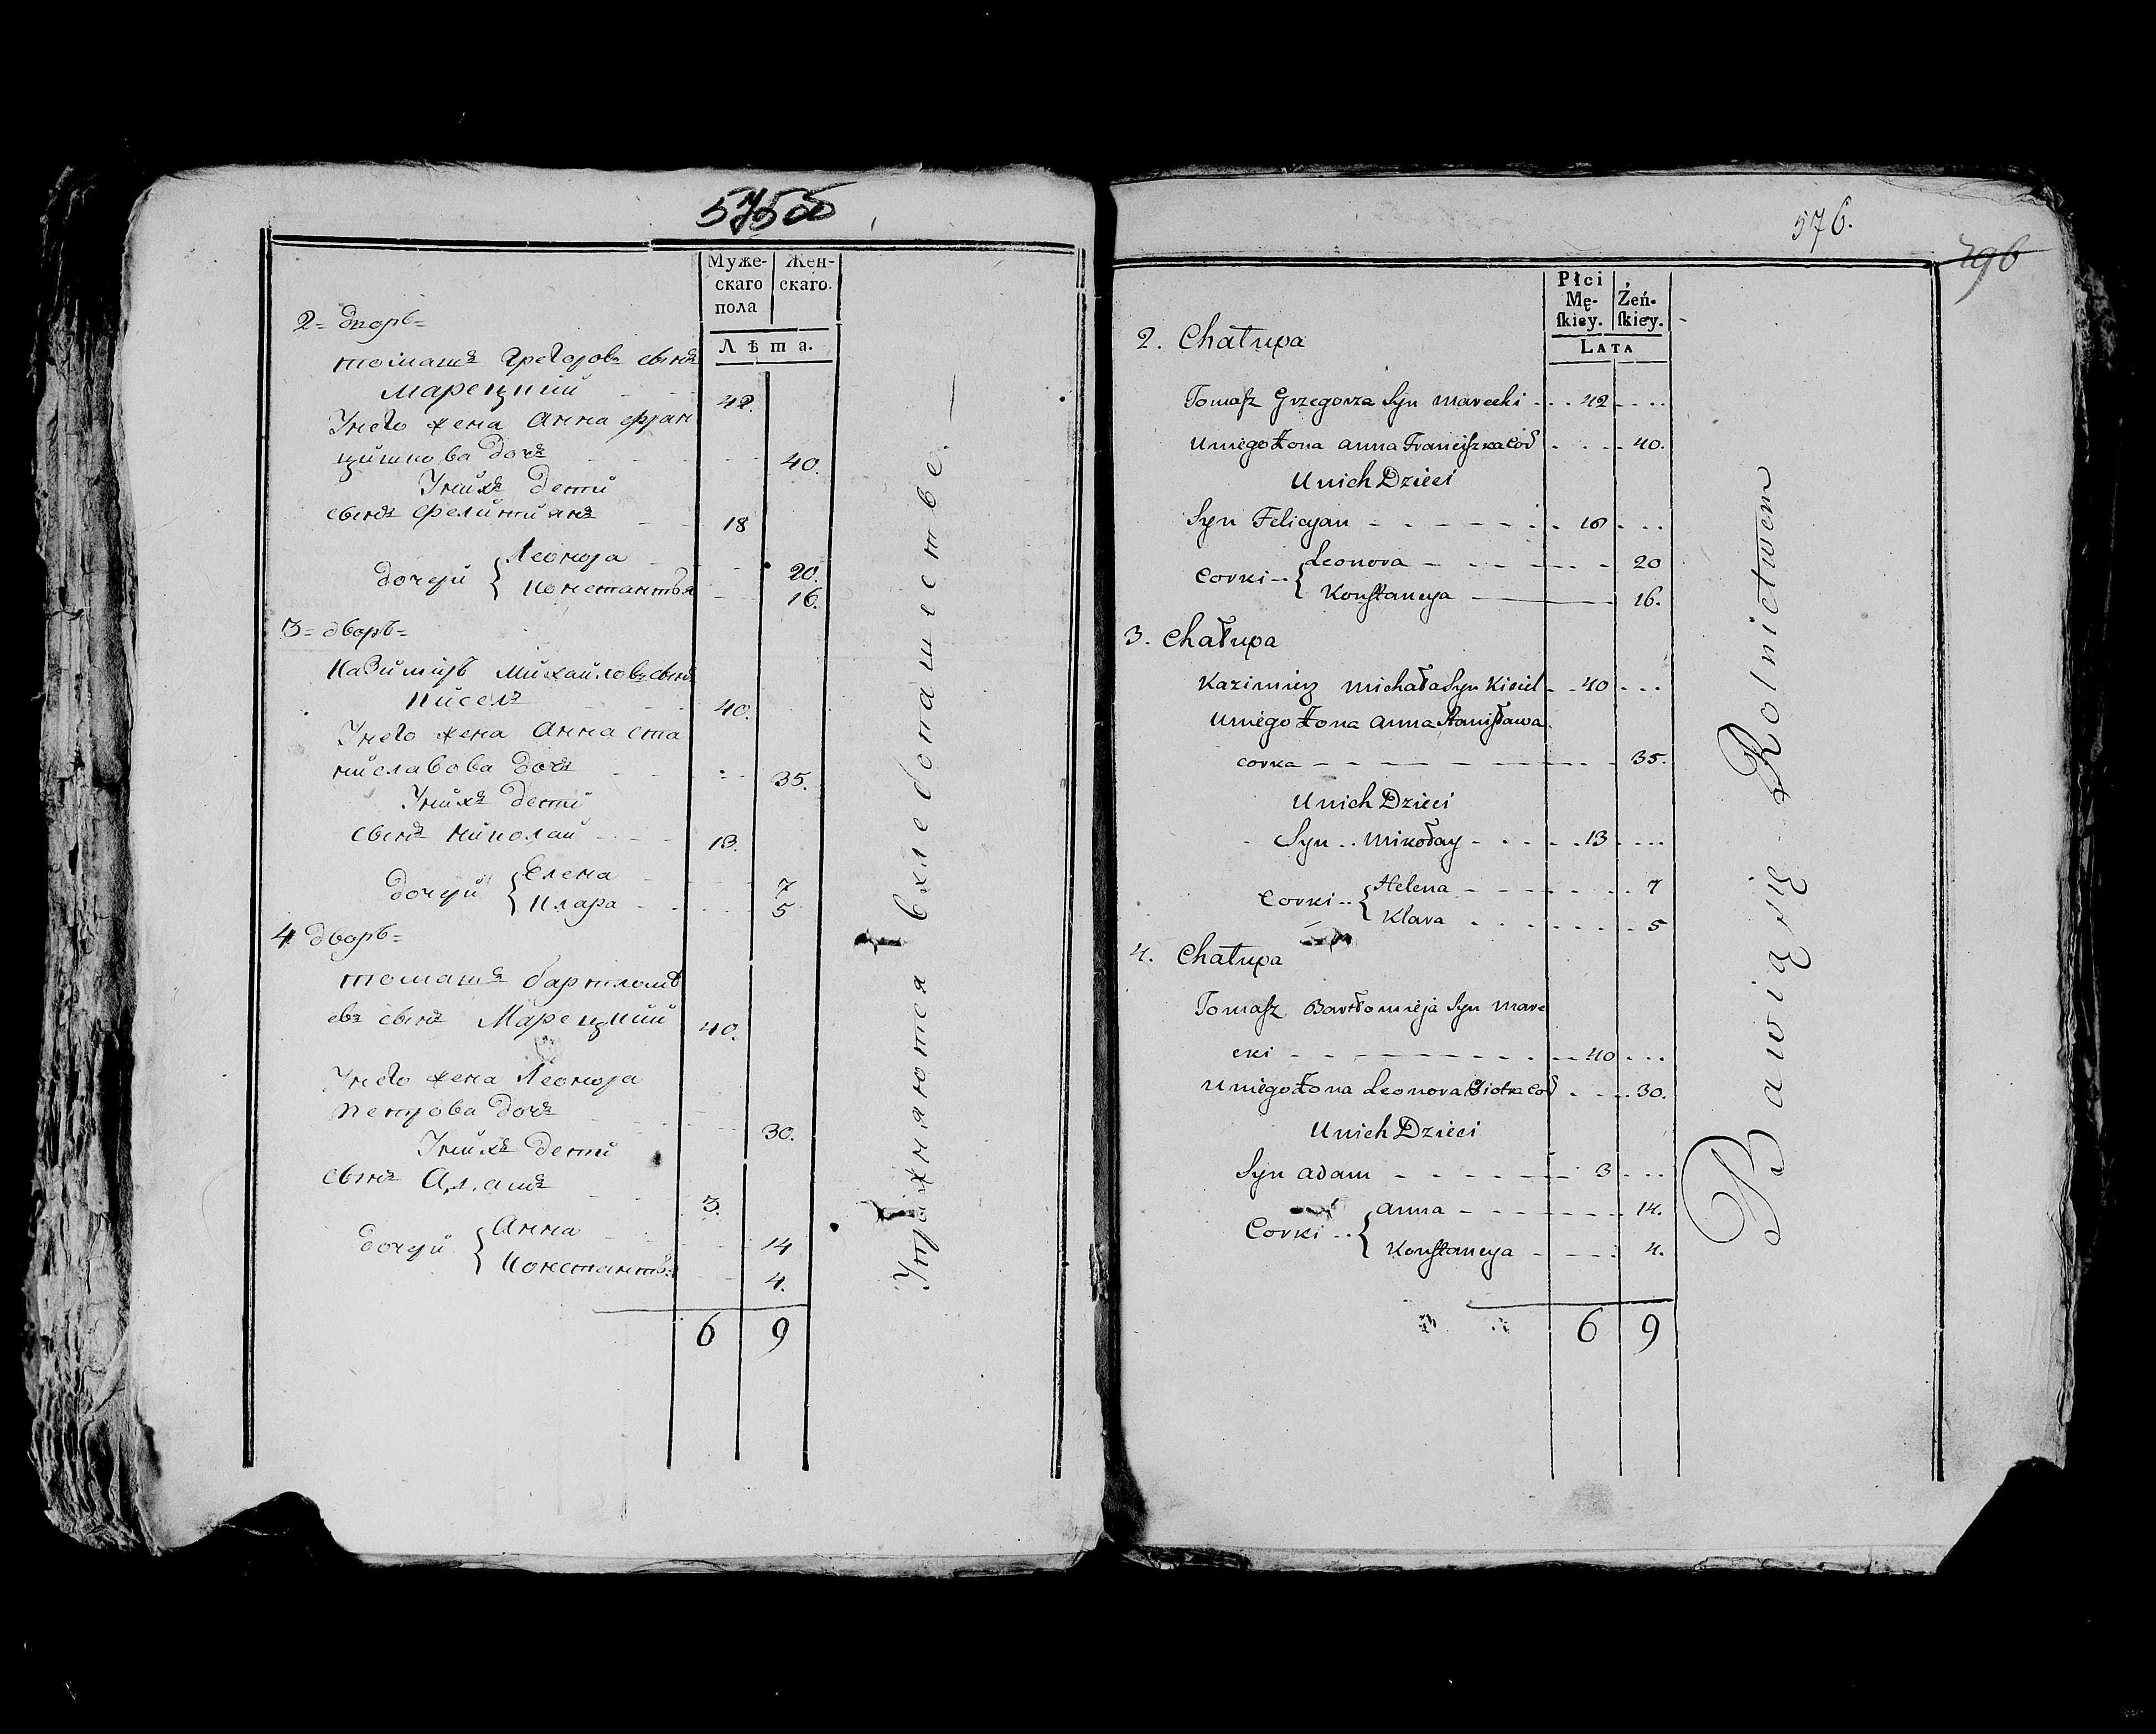 575об
Муже-
скаго
пола
Жен-
скаго.
Лѣта.
2= дворъ=
Томашъ Грегоровъ сынъ
Марецкий 42.
У него жена Анна Фран
цишкова дочь 40.
У нихъ дети
сынъ Фелициянъ 18
дочери Леонора 20.
Константья 16.
3= дворъ=
Казимиръ Михайловъ сынъ
Кисель 40.
У него жена Анна Ста
ниславова дочь 35.
У нихъ дети
сынъ Николай 13.
дочери Елена 7
Клара 5
4 дворъ=
Томашъ Бартломѣ
евъ сынъ Марецкий 40.
У него жена Леонора
Петрова дочь 30.
У нихъ дети
сынъ Адамъ 3.
дочери Анна 14
Константья 4.
6 9
Упражняются в хлебопашестве.
576.
296
Płci
Mę-
ſkiey.
Żeń-
ſkiey.
LATA
2. Chałupa
Tomaſz Grzegorza Syn Marecki - . . 42 - . . .
U niego Żona Anna Franciſzka Cór . - . . 40.
U nich Dzieci
Syn Felicyan - . - - - - . . 18 . . .
Corki .. Leonora - . - - - . - 20
Konſtancya - 16.
3. Chałupa
Kazimierz Michała Syn Kisiel - . 40 . . .
U niego Żona Anna Staniſława
corka - - - - - - - . - 35.
U nich Dzieci
Syn .. Mikołay - . - . - . 13 . . . .
Corki .. Helena - - - - - . . 7
Klara . . . - . . . . 5
4. Chałupa
Tomaſz Bartłomieja Syn Mare
cki - - - - - - - - . - . - 40 . . .
U niego Żona Leonora Piotra Cór . . . . 30.
U nich Dzieci
Syn Adam - . - - - - - 3 . . .
Corki .. Anna - - - - - - . 14.
Konſtancya - - - - . 4.
6 9
Bawią się Rolnictwem